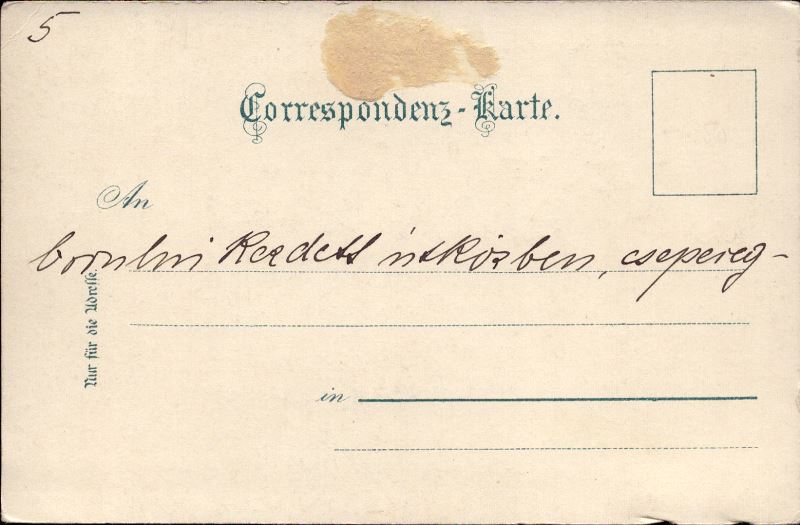 5
Correspondenz-Karte.
An
borulni kezdett útközben, csepereg-
Nur für die Adresse.
in